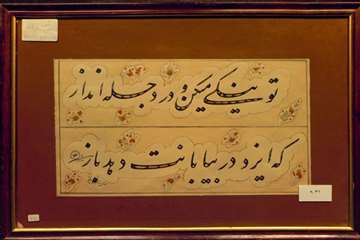 تو نیکی میکن و در دجله انداز
که ایزد در بیابانت دهد باز